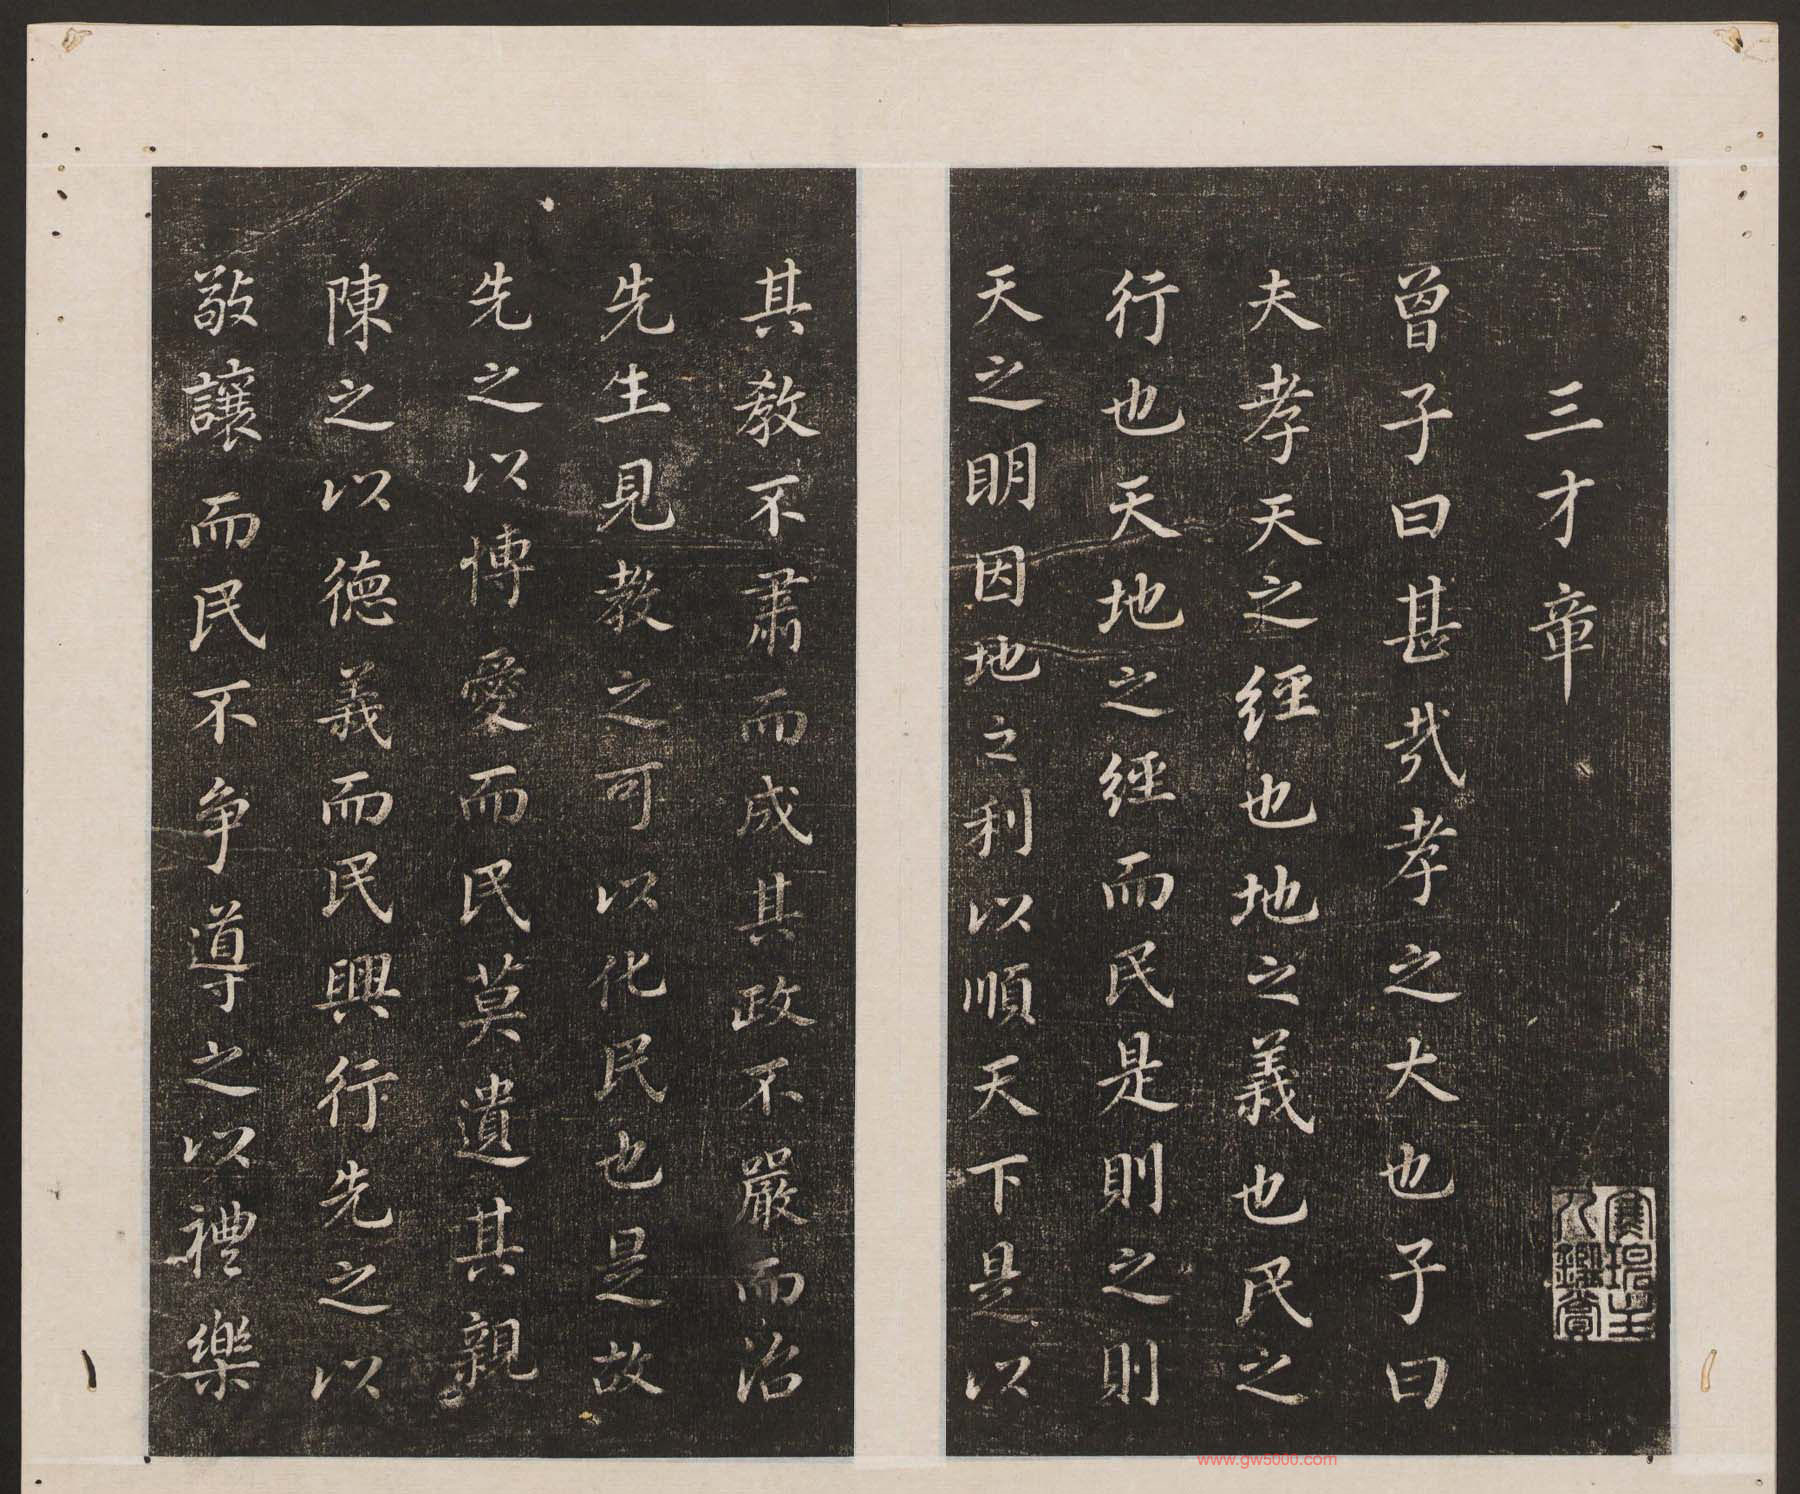 三才章
曾子曰甚哉孝之大也子曰
夫孝天之經也地之義也民之
行也天地之經而民是則之則
天之眀因地之利以順天下是以
其教不肅而成其政不嚴而治
先生見教之可以化民也是故
先之以博愛而民莫遺其親
陳之以德義而民興行先之以
敬讓而民不争導之以禮樂
主
人鑑賞
www.gw5000.com